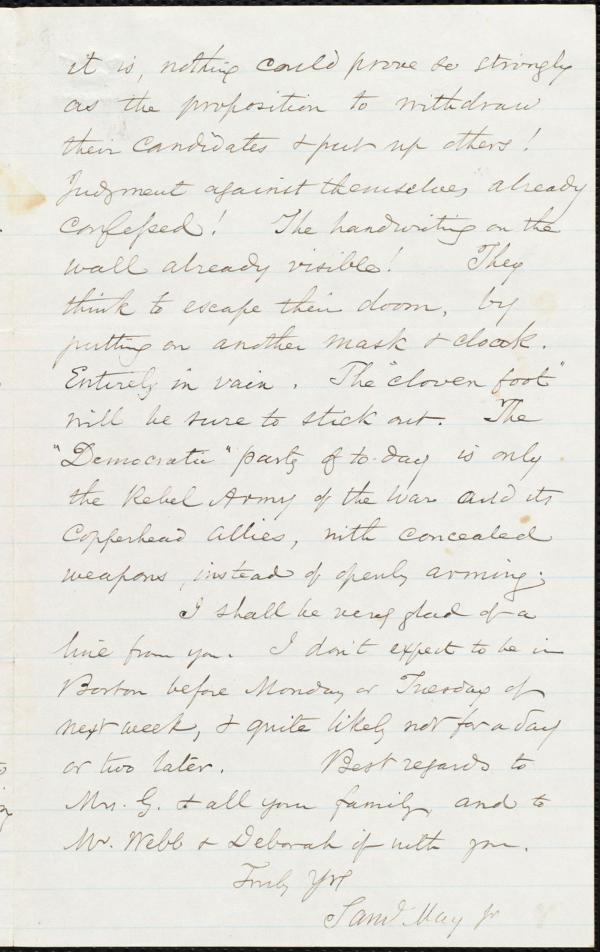 it is, nothing could prove so strongly
as the proposition to withdraw
their candidates & put up others!
Judgment against themselves already
confessed! The handwriting on the
wall already visible! They
think to escape their doom, by
putting on another mask & cloak.
Entirely in vain. The "cloven foot"
will be sure to stick out. The
"Democratic" party of to-day is only
the Rebel Army of the War and its
Copperhead allies, with concealed
weapons, instead of openly arming.
I shall be very glad of a
line from you. I don't expect to be in
Boston before Monday or Tuesday of
next week, & quite likely not for a day
or two later. Best regards to
Mrs. G. & all your family, and to
Mr. Webb & Deborah if with you.
Truly Yrs
Saml May Jr